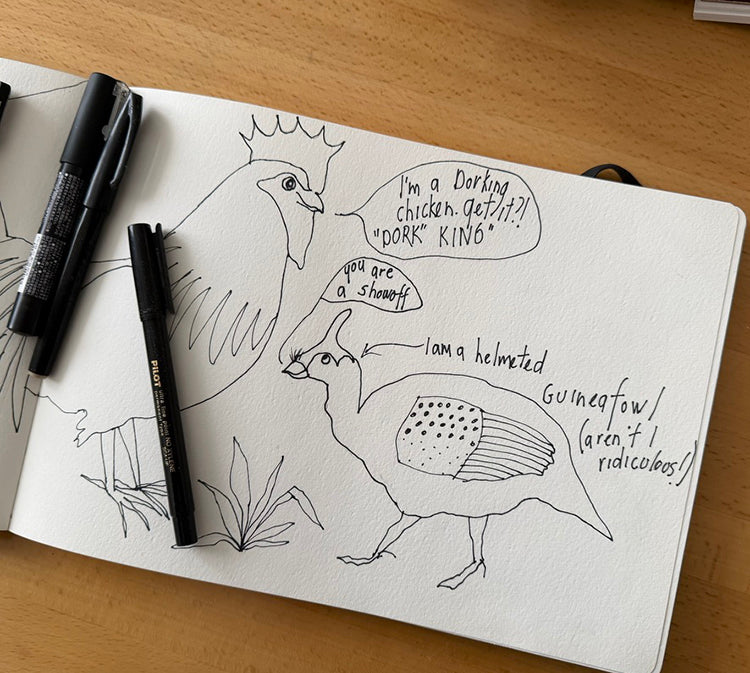 I'm a Dorking
chicken. get it?!
"DORK" KING"
you are
a showoff
I am a helmeted
Guineafowl
(aren't I
ridiculous!)
PILOT